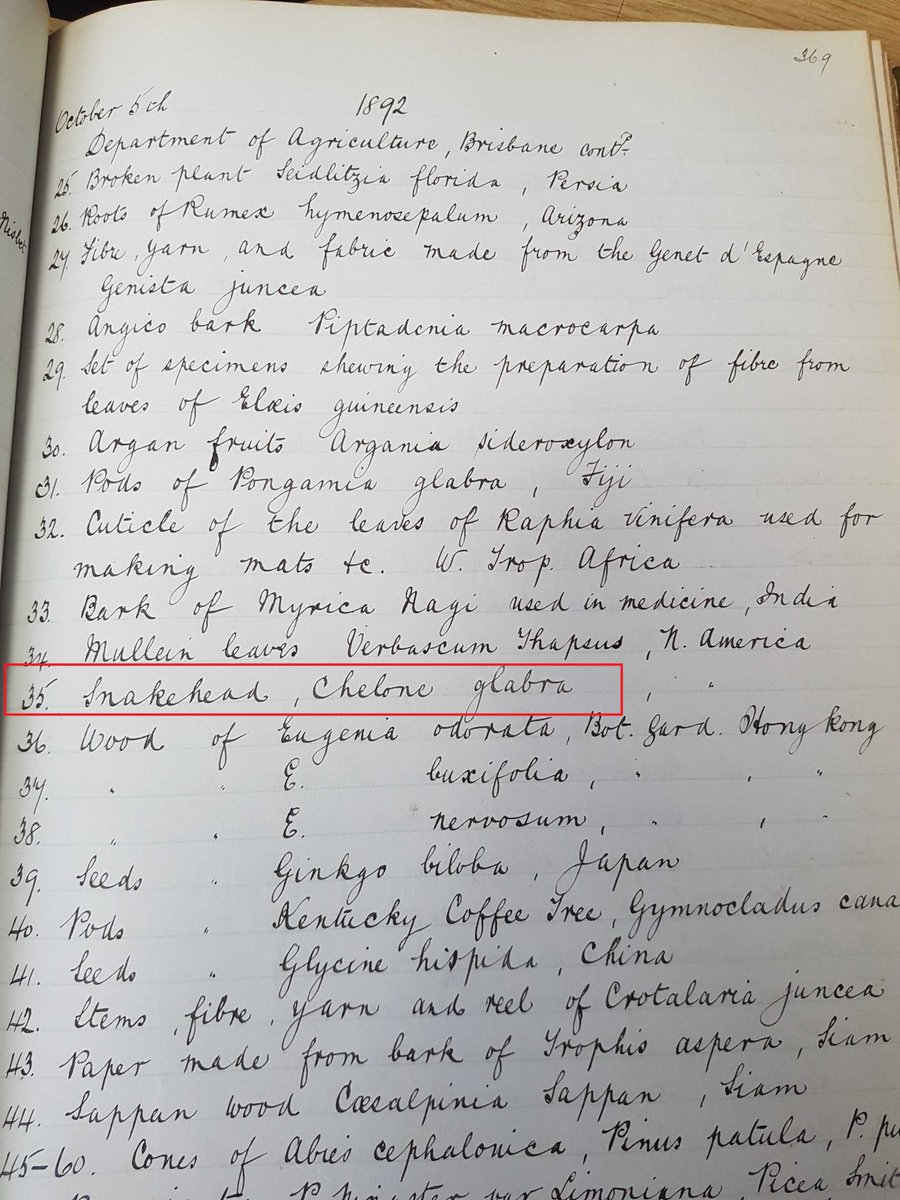 369
October 5th 1892
Department of Agriculture, Brisbane contd.
25. Broken plant Seidlitzia florida, Persia
26. Roots of Rumex hymenosepalum, Arizona
27. Fibre, yarn, and fabric made from the Genet d'Espagne
Genista juncea
28. Angico bark Piptadenia macrocarpa
29. Set of specimens shewing the preparation of fibre from
leaves of Elæis guineensis
30. Argan fruits Argania sideroxylon
31. Pods of Pongamia glabra, Fiji
32. Cuticle of the leaves of Raphia vinifera used for
making mats &c. W. Trop. Africa
33. Bark of Myrica Nagi used in medicine, India
34. Mullein leaves Verbascum Thapsus, N. America
35. Snakehead, Chelone glabra, "
36. Wood of Eugenia odorata, Bot. Gard. Hong Kong
37. " " E. buxifolia, " , "
38. " " E. nervosum, " , "
39. Seeds " Ginkgo biloba, Japan
40. Pods " Kentucky Coffee Tree, Gymnocladus cana
41. Seeds " Glycine hispida, China
42. Stems, fibre, yarn and reel of Crotalaria juncea
43. Paper made from bark of Trophis aspera, Siam
44. Sappan wood Cæsalpinia Sappan, Siam
45-60. Cones of Abies cephalonica, Pinus patula, P. pu
P. Pinaster var Limoniana, Picea Smit